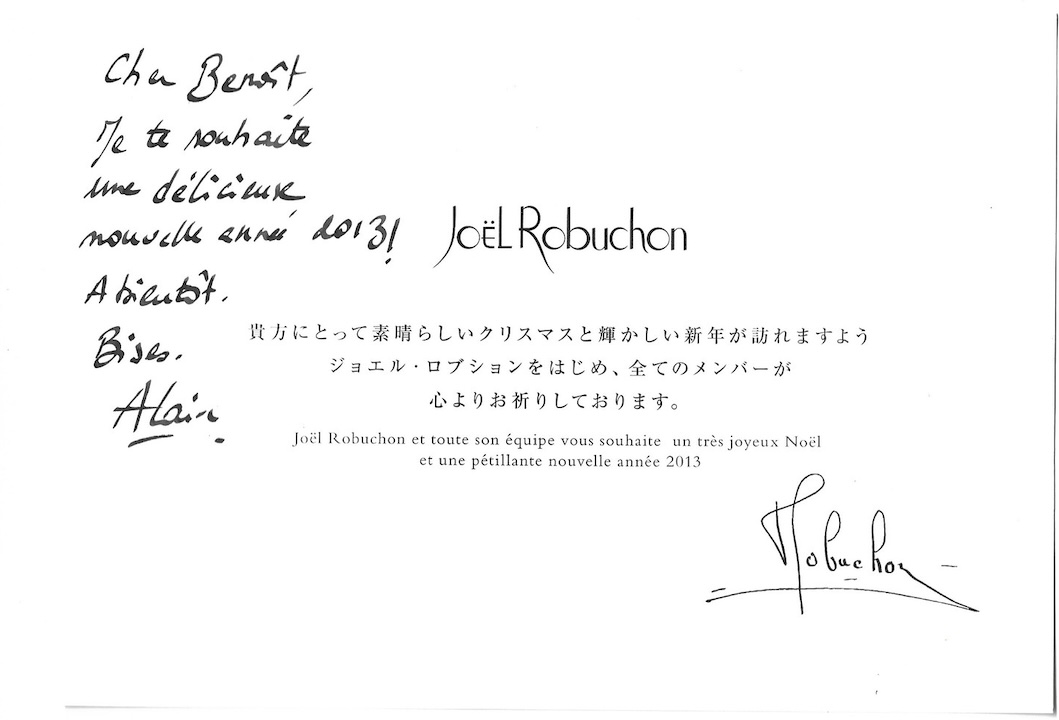 Cher Benoît,
Je te souhaite
une délicieuse
nouvelle année 2013!
A bientôt.
Bises.
Alain
Joël Robuchon
貴方にとって素晴らしいクリスマスと輝かしい新年が訪れますよう
ジョエル・ロブションをはじめ、全てのメンバーが
心よりお祈りしております。
Joël Robuchon et toute son équipe vous souhaite un très joyeux Noël
et une pétillante nouvelle année 2013
Robuchon